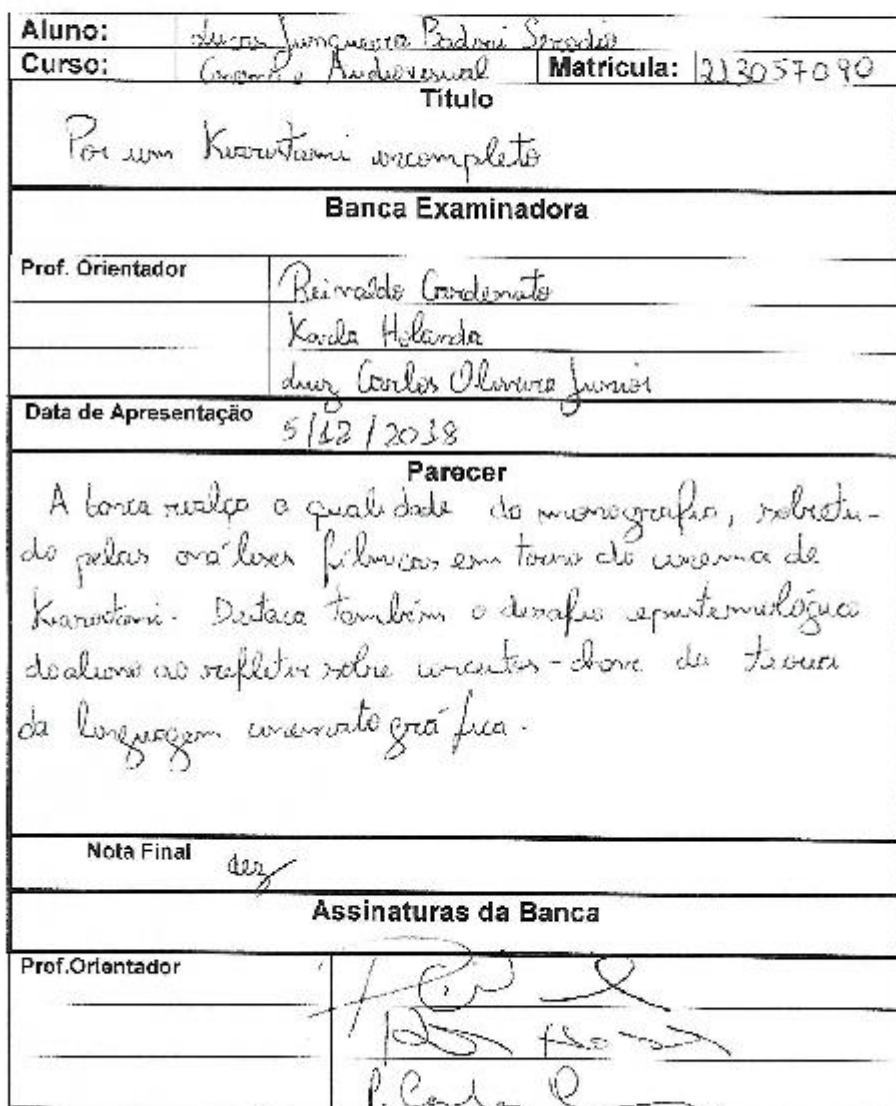 Aluno: Lucas Junqueira Badini Serodio
Curso: Cinema e Audiovisual Matrícula: 213057090
Título
Por um Kiarostami incompleto
Banca Examinadora
Prof. Orientador Reinaldo Cardenuto
Karla Holanda
Luiz Carlos Oliveira Junior
Data de Apresentação 5/12/2018
Parecer
A banca realça a qualidade da monografia, sobretu-
do pelas análises fílmicas em torno do cinema de
Kiarostami. Destaca também o desafio epistemológico
do aluno ao refletir sobre conceitos-chave da teoria
da linguagem cinematográfica.
Nota Final dez
Assinaturas da Banca
Prof.Orientador